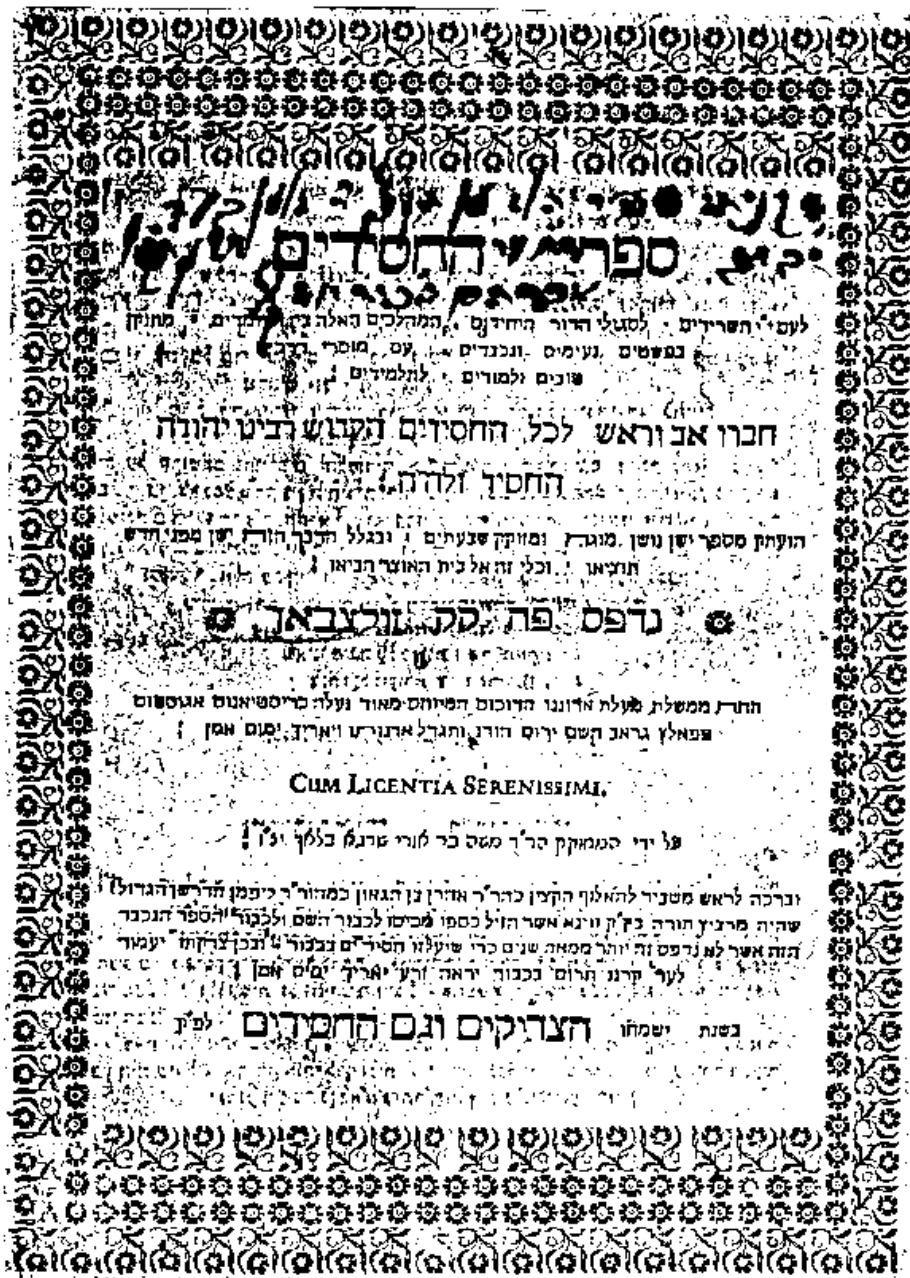 ספר החסידים
לעם השרידים לסגולי הדור היחידים המהלכים האלה בין העמדים מתוקן
בפשטים נעימים ונכבדים עם מוסרי
טובים ולמודים לתלמידים :
חברו אב וראש לכל החסידים הקדוש רבינו יהודה
החסיד זלה״ה :
הועתק מספר ישן נושן מוגה ומזוקק שבעתים ובגלל הדבר הזה ישן מפני חדש
תוציאו וכלי זה אל בית האוצר הביאו :
נדפס פה קק זולצבאך
תחת ממשלת מעלת אדוננו הדוכוס המיוחס מאוד נעלה כריסטיאנוס אגוסטוס
פפאלץ גראב השם ירום הודו ותגדל ארצו ויאריך ימים אמן :
CUM LICENTIA SERENISSIMI.
על ידי המחוקק הר״ר משה בר אורי שרגא בלאך יצ״ו :
וברכה לראש משביר להאלוף הקצין כהר״ר אהרן בן הגאון כמהור״ר ליפמן הדרשן הגדול
שהיה מרביץ תורה בק״ק ווינא אשר הזיל כספו מכיסו לכבוד השם ולכבוד הספר הנכבד
הזה אשר לא נדפס זה יותר ממאה שנים כדי שיעלזו חסידים בכבוד ובכן צדקתו יעמוד
לעד קרנו תרום בכבוד יראה זרע יאריך ימים אמן :
בשנת ישמחו הצדיקים וגם החסידים לפ״ק